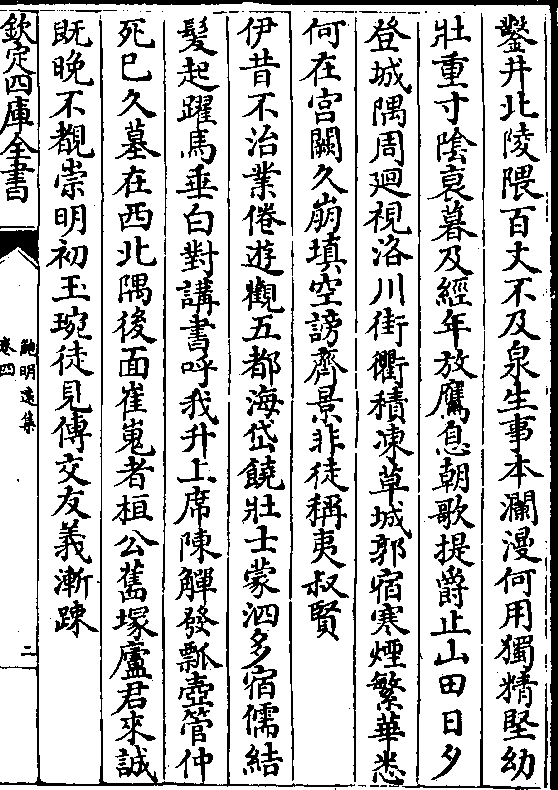 鑿井北陵隈百丈不及泉生事本瀾漫何用獨精堅幼
壯重寸陰衰暮及經年放鷹息朝歌提爵止山田日夕
登城隅周迴視洛川街衢積凍草城郭宿寒煙繁華悉
何在宮闕久崩填空謗齊景非徒稱夷叔賢
伊昔不治業倦遊觀五都海岱饒壯士蒙泗多宿儒結
髮起躍馬垂白對講書呼我升上席陳觶發瓢壺管仲
死已久墓在西北隅後面崔嵬者桓公舊塚廬君來誠
既晚不覩崇明初玉琬徒見傳交友義漸踈
欽定四庫全書
鮑明遠集
卷四
二